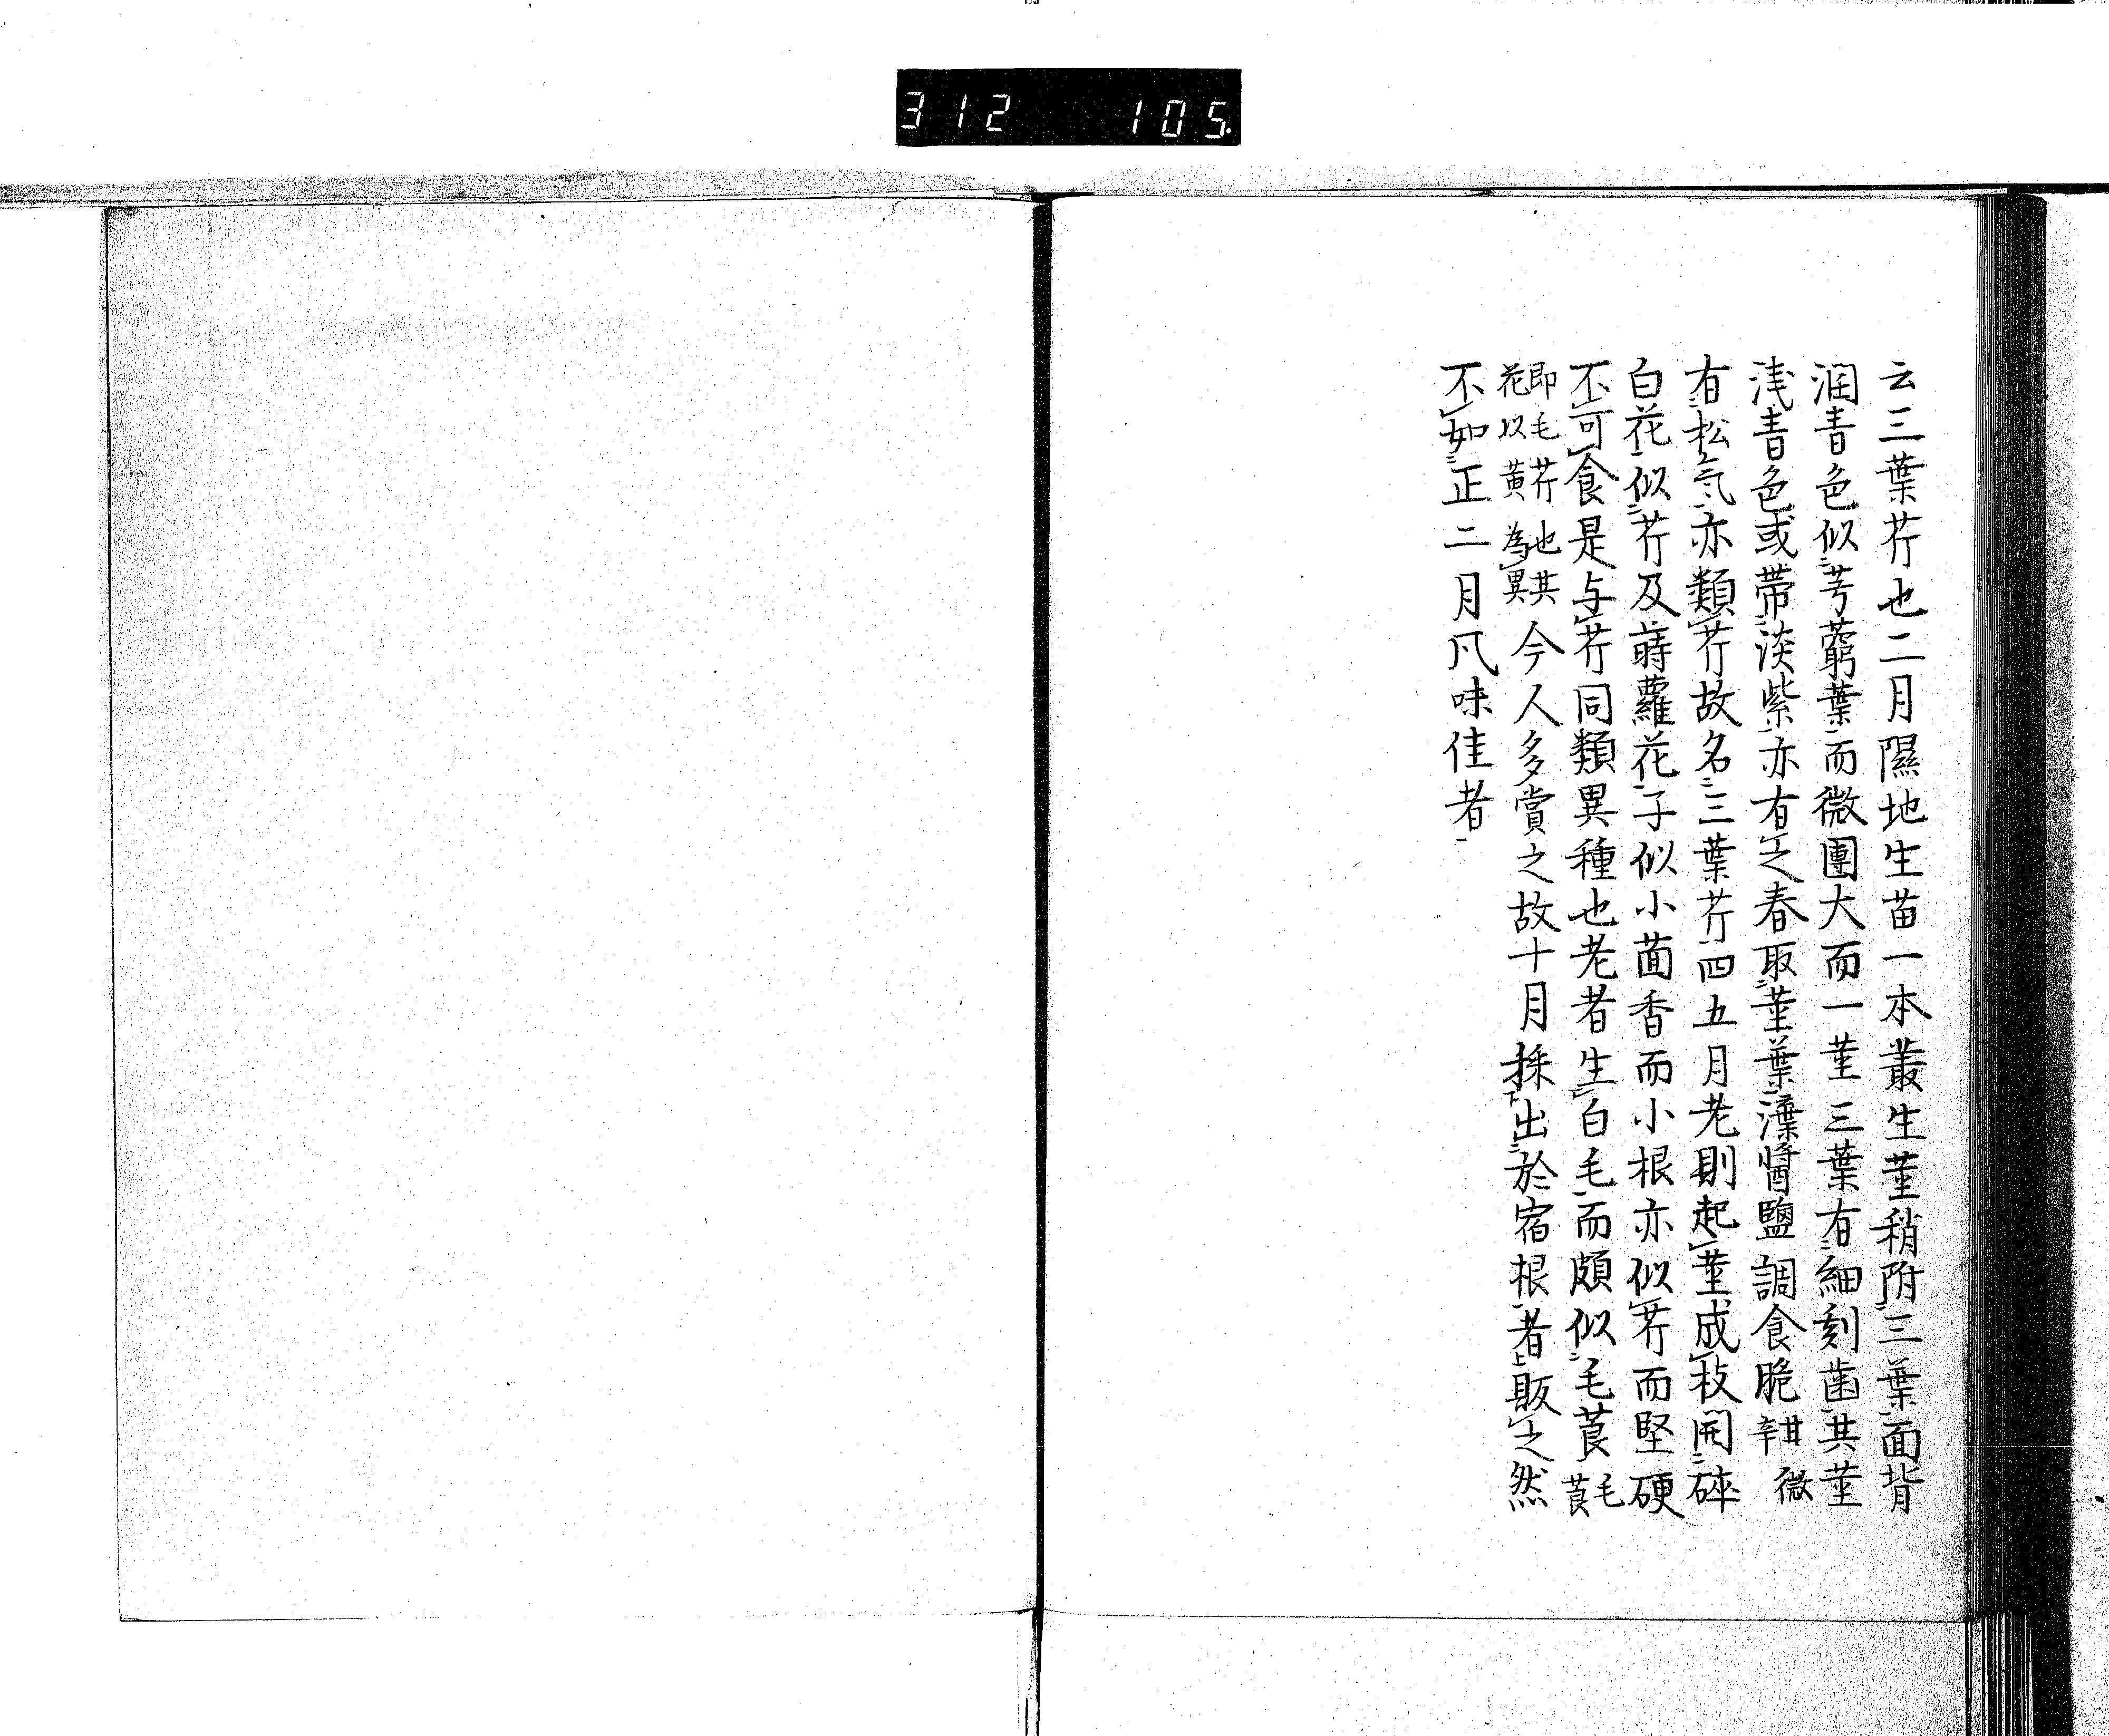 312 105.
云三葉芹也二月隰地生苗一本叢生莖稍附三葉面背
润青色似芎藭葉而微團大而一莖三葉有細刻歯其莖
浅青色或帯淡紫亦有之春取莖葉瀼醤鹽調食脆甘辛微
有松気亦類芹故名三葉芹四五月老則起莖成枝開碎
白花似芹及蒔蘿花子似小茴香而小根亦似芹而堅硬
不可食是与芹同類異種也老者生白毛而頗似毛莨毛莨
即毛芹也其花以黄為異今人多賞之故十月採出於宿根者販之然
不如正二月凡味佳者